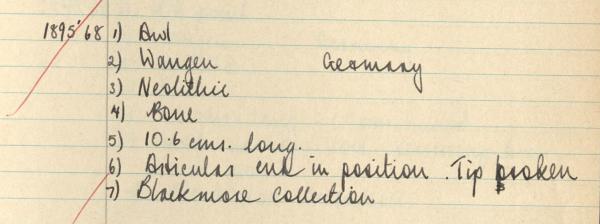 1895'68 1) Awl
2) Wangen Germany
3) Neolithic
4) Bone
5) 10.6 cms. long.
6) Articular end in position. Tip broken
7) Blackmore collection